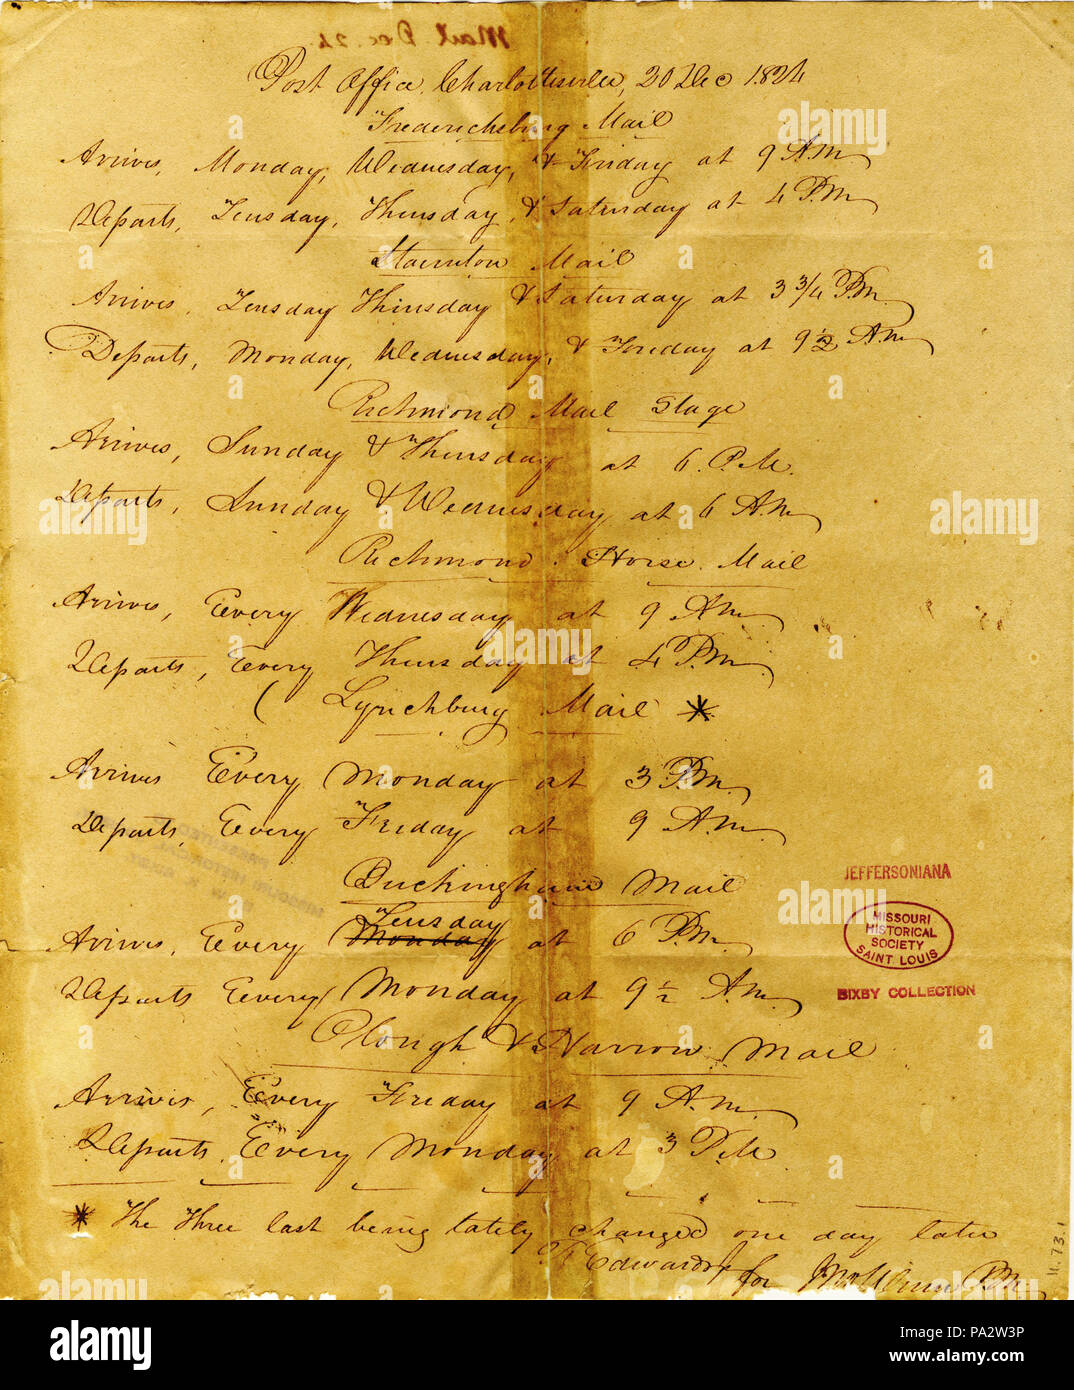 Mail Dec. 24
Post Office, Charlottesville, 20 Dec 1824
Fredericksburg Mail
Arrives, Monday, Wednesday, & Friday at 9 A.M
Departs, Tuesday, Thursday, & Saturday at 4 P.M
Staunton Mail
Arrives, Tuesday Thursday & Saturday at 3 3/4 P.M.
Departs, Monday, Wednesday, & Friday at 9 1/2 A.M
Richmond Mail Stage
Arrives, Sunday & Thursday at 6. P.M.
Departs, Sunday & Wednesday at 6 A.M
Richmond. Horse. Mail
Arrives, Every Wednesday at 9 A.M
Departs, Every Thursday at 4 P.M
( Lynchburg Mail *
Arrives Every Monday at 3 P.M.
Departs, Every Friday at 9 A.M.
Buckingham Mail
Tuesday
Arrives, Every Monday at 6 P.M.
Departs Every Monday at 9 1/2 A.M
Plough & Harrow Mail
Arrives, Every Friday at 9 A.M.
Departs, Every Monday at 3 P.M
* The Three last being lately changed one day later
Edwards for P.M.
JEFFERSONIANA
MISSOURI
HISTORICAL
SOCIETY
SAINT LOUIS
BIXBY COLLECTION
11.73.1
alamy stock photo
alamy
Image ID: PA2W3P
www.alamy.com